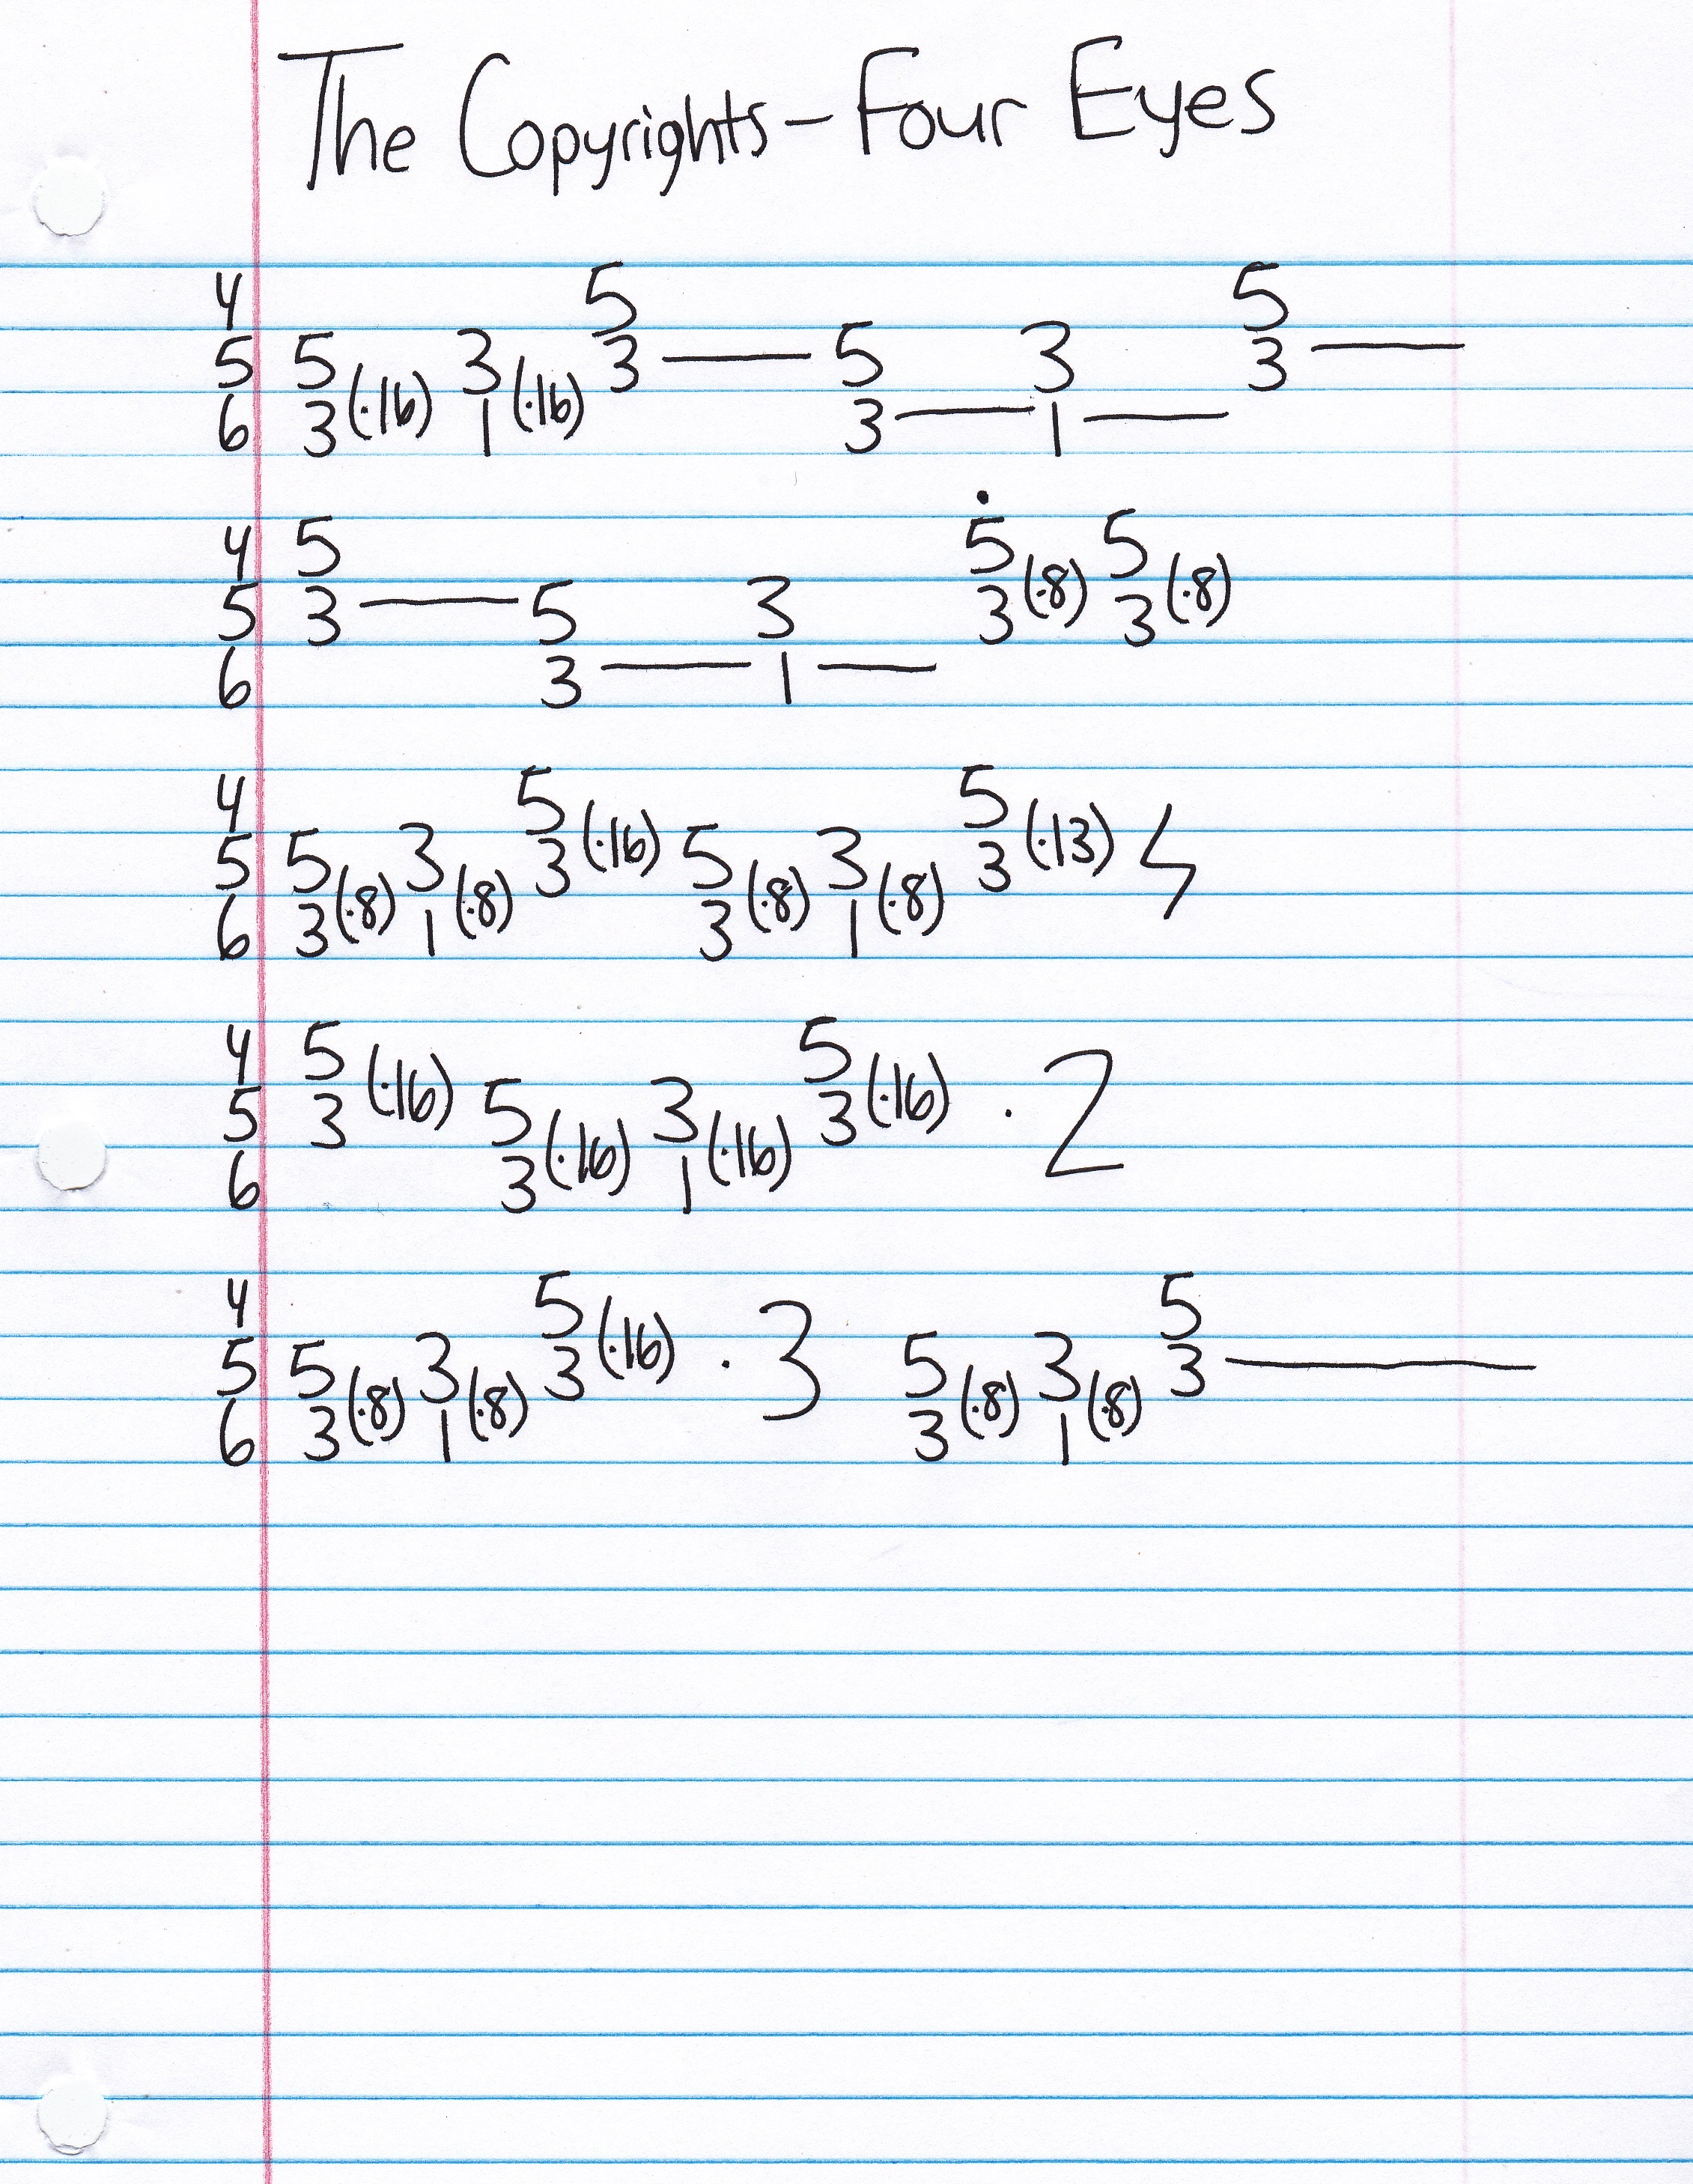 The Copyrights - Four Eyes
4 5 5
5 5 3 3 — 5 3 3 —
6 3 (·16) 1 (·16) 3 — 1 —
4 5 5 5
5 3 — 5 3 3 (·8) 3 (·8)
6 3 — 1 —
4 5 5
5 5 3 3 (·16) 5 3 3 (·13)
6 3 (·8) 1 (·8) 3 (·8) 1 (·8)
4 5 5
5 3 (·16) 5 3 3 (·16) · 2
6 3 (·16) 1 (·16)
4 5 5
5 5 3 3 (·16) · 3 5 3 3 —
6 3 (·8) 1 (·8) 3 (·8) 1 (·8)